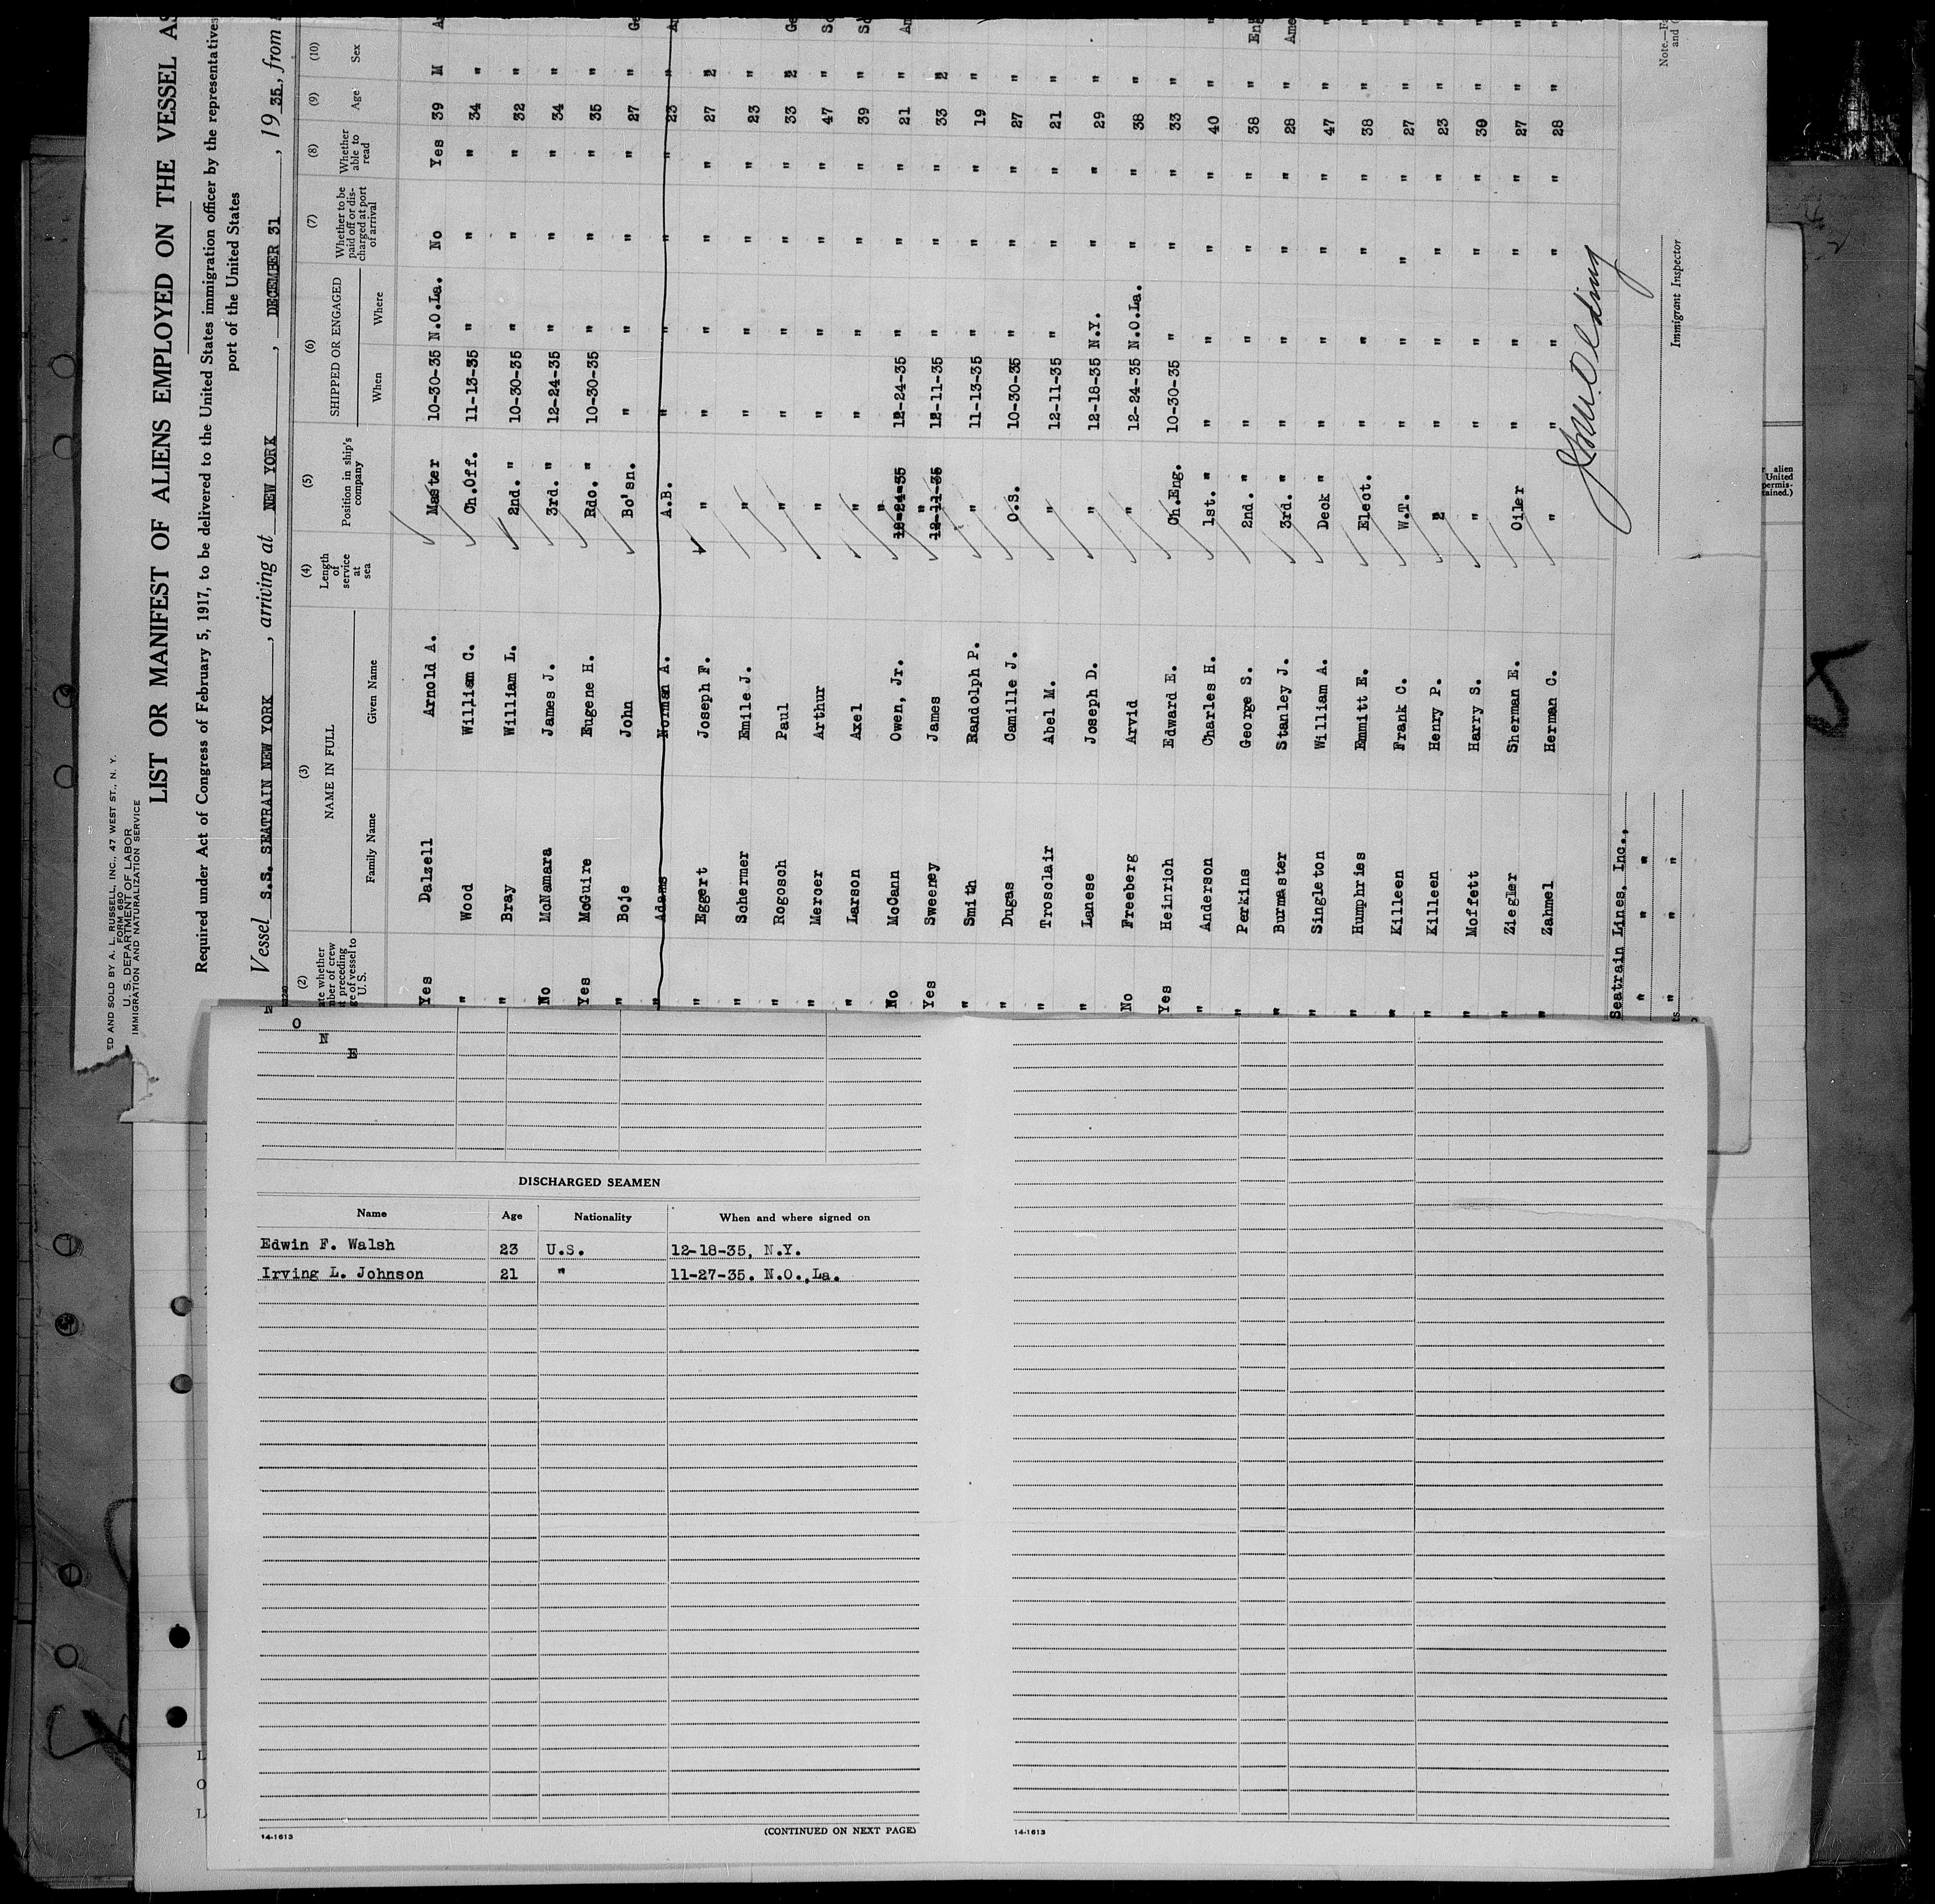 ED AND SOLD BY A. L. RUSSELL, INC., 47 WEST ST., N. Y.
FORM 680
U. S. DEPARTMENT OF LABOR
IMMIGRATION AND NATURALIZATION SERVICE
LIST OR MANIFEST OF ALIENS EMPLOYED ON THE VESSEL AS
Required under Act of Congress of February 5, 1917, to be delivered to the United States immigration officer by the representatives
port of the United States
Vessel S.S. SEATRAIN NEW YORK, arriving at NEW YORK, DECEMBER 31, 1935, from
(2) (3) (4) (5) (6) (7) (8) (9) (10)
te whether mber of crew t preceding ge of vessel to U. S. NAME IN FULL Length of service at sea Position in ship's company SHIPPED OR ENGAGED Whether to be paid off or discharged at port of arrival Whether able to read Age Sex
Family Name Given Name When Where
Yes Dalzell Arnold A. Master 10-30-35 N.O.La. No Yes 39 M
" Wood William C. Ch.Off. 11-13-35 " " " 34 "
" Bray William L. 2nd. " 10-30-35 " " " 32 "
No McNamara James J. 3rd. " 12-24-35 " " " 34 "
Yes McGuire Eugene H. Rdo. " 10-30-35 " " " 35 "
" Boje John Bo'sn. " " " " 27 " Ge
" Adams Norman A. A.B. " " " " 23 "
" Eggert Joseph F. " " " " " 27 "
" Schermer Emile J. " " " " " 23 "
" Rogosch Paul " " " " " 33 " Ge
" Mercer Arthur " " " " " 47 " Sc
" Larson Axel " " " " " 39 "
No McCann Owen, Jr. " 12-24-35 " " " 21 " Am
Yes Sweeney James " 12-11-35 " " " 33 "
" Smith Randolph P. " 11-13-35 " " " 19 "
" Dugas Camille J. O.S. 10-30-35 " " " 27 "
" Trosclair Abel M. " 12-11-35 " " " 21 "
" Lanese Joseph D. " 12-18-35 N.Y. " " 29 "
No Freeberg Arvid " 12-24-35 N.O.La. " " 38 "
Yes Heinrich Edward E. Ch.Eng. 10-30-35 " " " 33 "
" Anderson Charles H. 1st. " " " " " 40 " "
" Perkins George S. 2nd. " " " " " 38 " Eng
" Burmaster Stanley J. 3rd. " " " " " 28 " Ame
" Singleton William A. Deck " " " " " 47 " "
" Humphries Emmitt E. Elect. " " " " 38 " "
" Killeen Frank C. W.T. " " " " 27 " "
" Killeen Henry P. " " " " " 23 " "
" Moffett Harry S. " " " " " 30 " "
" Ziegler Sherman E. Oiler " " " " 27 " "
" Zahmel Herman C. " " " " " 28 " "
Seatrain Lines, Inc.,
" " "
" " "
Immigrant Inspector
Note.—
and
r alien
United
permis-
tained.)
O
N
E
DISCHARGED SEAMEN
Name Age Nationality When and where signed on
Edwin F. Walsh 23 U.S. 12-18-35, N.Y.
Irving L. Johnson 21 " 11-27-35. N.O.,La.
14-1613 (CONTINUED ON NEXT PAGE)
14-1613